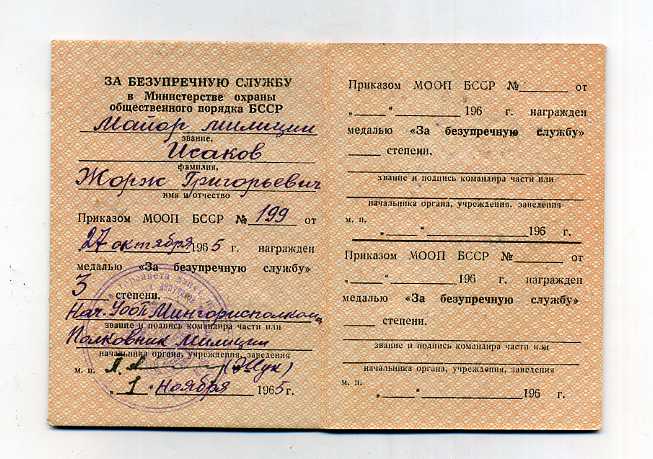 ЗА БЕЗУПРЕЧНУЮ СЛУЖБУ
в Министерстве охраны
общественного порядка БССР
Майор милиции
звание,
Исаков
фамилия,
Жорж Григорьевич
имя и отчество
Приказом МООП БССР № 199 от
„27" октября 1965 г. награжден
медалью «За безупречную службу»
3 степени.
Нач. УООП Мингорисполкома
звание и подпись командира части или
Полковник милиции
начальника органа, учреждения, заведения
м. п. (Жук)
„1" ноября 1965 г.
Приказом МООП БССР №______ от
„____" ____________ 196 г. награжден
медалью «За безупречную службу»
_____ степени.
звание и подпись командира части или
начальника органа, учреждения, заведения
м. п. „____" ____________ 196 г.
Приказом МООП БССР №______ от
„____" ____________ 196 г. награжден
медалью «За безупречную службу»
_____ степени.
звание и подпись командира части или
начальника органа, учреждения, заведения
м. п. „____" ____________ 196 г.